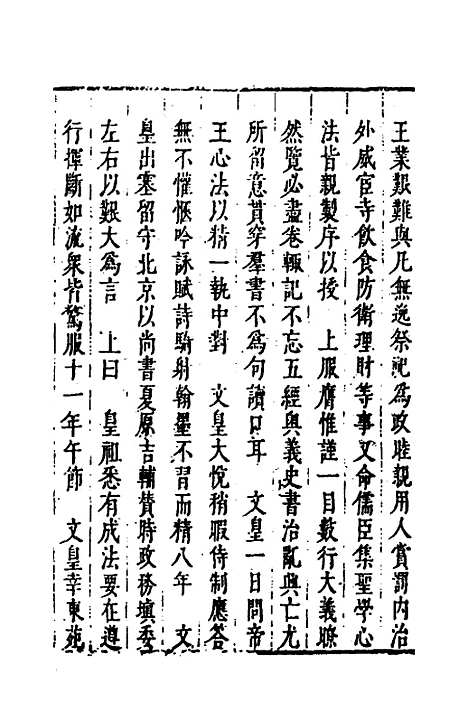 王業艱難與凡無逸祭祀為政睦親用人賞罰內治
外戚宦寺飲食防衛理財等事又命儒臣集聖學心
法皆親製序以授　上服膺惟謹一目數行大義瞭
然覽必盡卷輒記不忘五經奧義史書治亂興亡尤
所留意貫穿羣書不為句讀口耳　文皇一日問帝
王心法以精一執中對　文皇大悅稍暇侍制應答
無不愜吟詠賦詩騎射翰墨不習而精八年　文
皇出塞留守北京以尚書夏原吉輔賛時政務填委
左右以艱大為言　上曰　皇祖悉有成法要在遵
行揮斷如流衆皆驚服十一年午節　文皇幸東苑